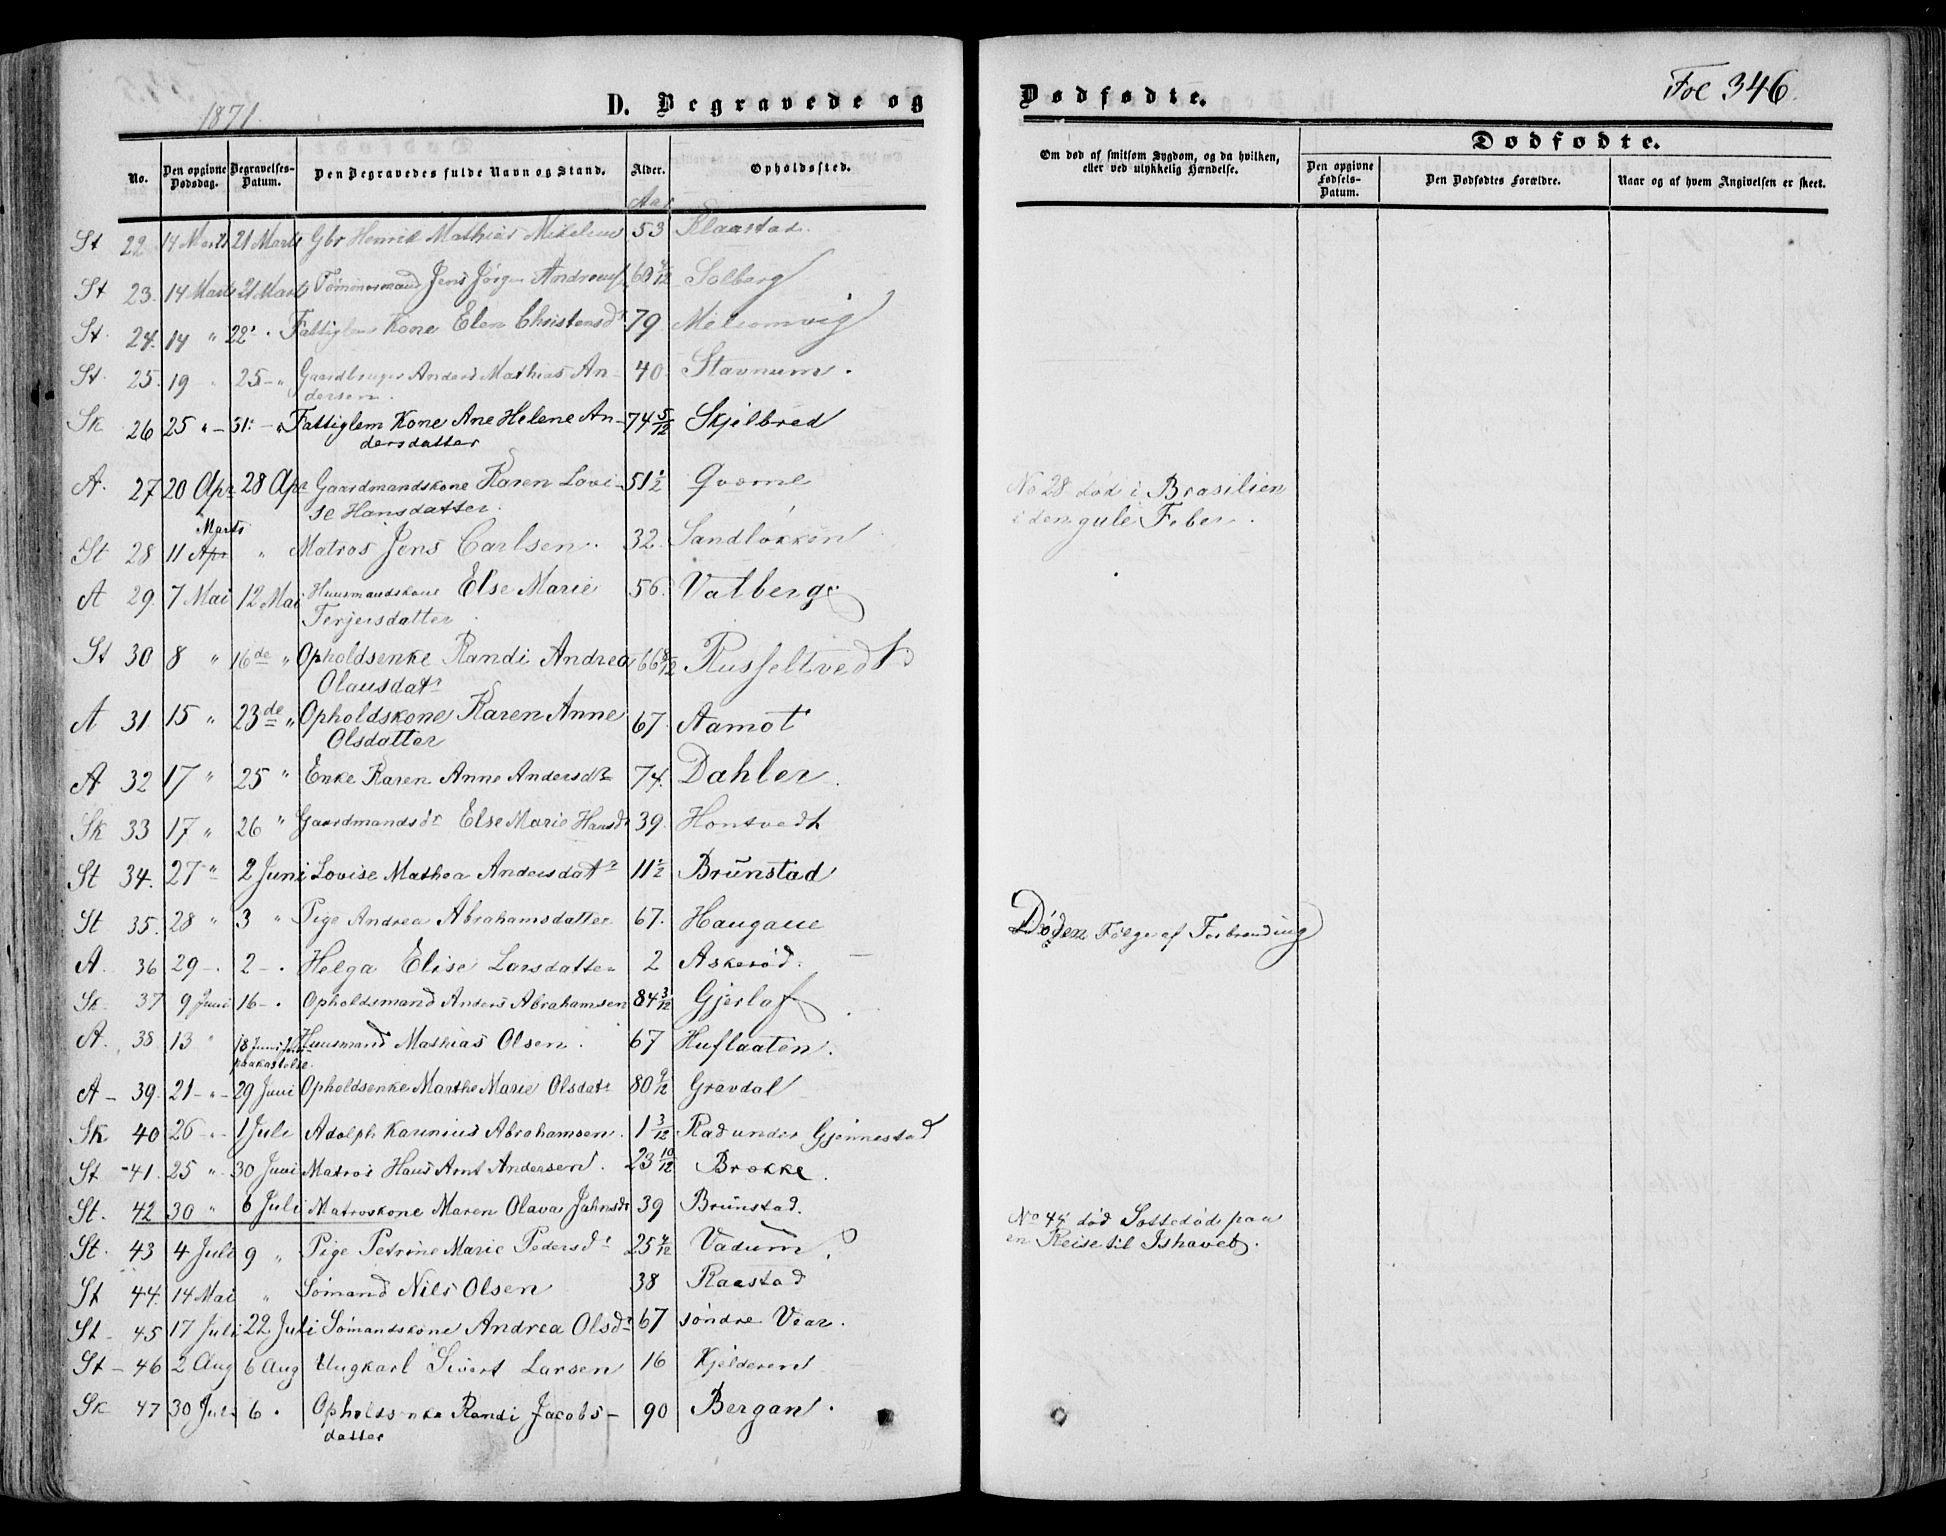 1871.
D. Begravede og
No. Den opgivne Dødsdag. Begravelses-Datum. Den Begravedes fulde Navn og Stand. Alder. Opholdssted.
Aar
St 22 14 Marts 21 Marts Gbr Henrik Mathias Mikelsen 53 Klaastad.
St 23. 14 Marts 21 Marts Tømmermand Jens Jørgen Andreas 60 Solberg
St. 24. 14 " 22 . Fattiglem Kone Elen Christensdr. 79 Melsomvig
St. 25. 19 " 25 - " Gaardbruger Anders Mathias An-
dersen. 40. Stavnum.
Sk 26 25 " - 31. - " Fattiglem Kone Ane Helene An-
dersdatter 74 5/12 Skjelbred
A. 27 20 Apr 28 Apr Gaardmandskone Karen Lovi-
se Hansdatter. 51 1/2 Qverne
Marts
St 28 11 Apr " Matros Jens Carlsen. 32. Sandløkken
A 29. 7 Mai 12 Mai Huusmandskone Else Marie
Terjersdatter. 56. Valberg
St 30 8 " 16de " Opholdsenke Randi Andrea
Olausdatr 66 8/12 Russeltvedt
A 31 15 " 23de " Opholdskone Karen Anne
Olsdatter 67. Aamot
A 32 17 " 25 " Enke Karen Anne Andersdr 74. Dahler.
Sk 33 17 " 26 " Gaardmandsdr Else Marie Hansdr 39. Hontvedt
St 34. 27 " 2 Juni Lovise Mathea Andersdatr 11 1/2 Brunstad
St 35. 28 " 3 " Pige Andrea Abrahamsdatter 67. Haugane
A. 36 29 - . 2 - . Helga Elise Larsdatter 2 Askerød.
Sk. 37 9 Juni 16 - . Opholdsmand Anders Abrahamsen 84 3/12 Gjerla
A. 38 13 " 18 Juni Huusmand Mathias Olsen. 67 Huflaaten.
A - 39. 21 - " - 29 Juni Opholdsenke Marthe Marie Olsdatr 80 9/12 Gravdal
Sk 40 26 - . - 1 Juli Adolph Karinius Abrahamsen. 1 3/12 Rad under Gjennestad
St - 41. 25 " 30 Juni Matros Hans Arnt Andersen. 23 10/12 Brekke.
St. 42 30 " 6 Juli Matroskone Maren Olava Jahnsdr 39 Brunstad.
St. 43 4 Juli 9 " Pige Petrine Marie Pedersdr 25 4/12 Vadum
St 44. 14 Mai " Sømand Nils Olsen 38 Raastad
St - 45 17 Juli 22 Juli Sømandskone Andrea Olsdr 67 søndre Vear.
St - 46 2 Aug 6 Aug Ungkarl Sivert Larsen 16 Kjelderen
Sk 47 30 Juli 6 . Opholdsenke Randi Jacobs-
datter 90 Bergan.
Dødfødte.
Fol 346.
Dødfødte.
Om død af smitsom Sygdom, og da hvilken, eller ved ulykkelig Hændelse. Den opgivne Fødsels-Datum. Den Dødfødtes Forældre. Naar og af hvem Angivelsen er skeet.
No 28 død i Brasilien
i den gule Feber.
Døden Følge af Forbrænding
No 44 død Sottedød paa
en Reise til Ishavet.